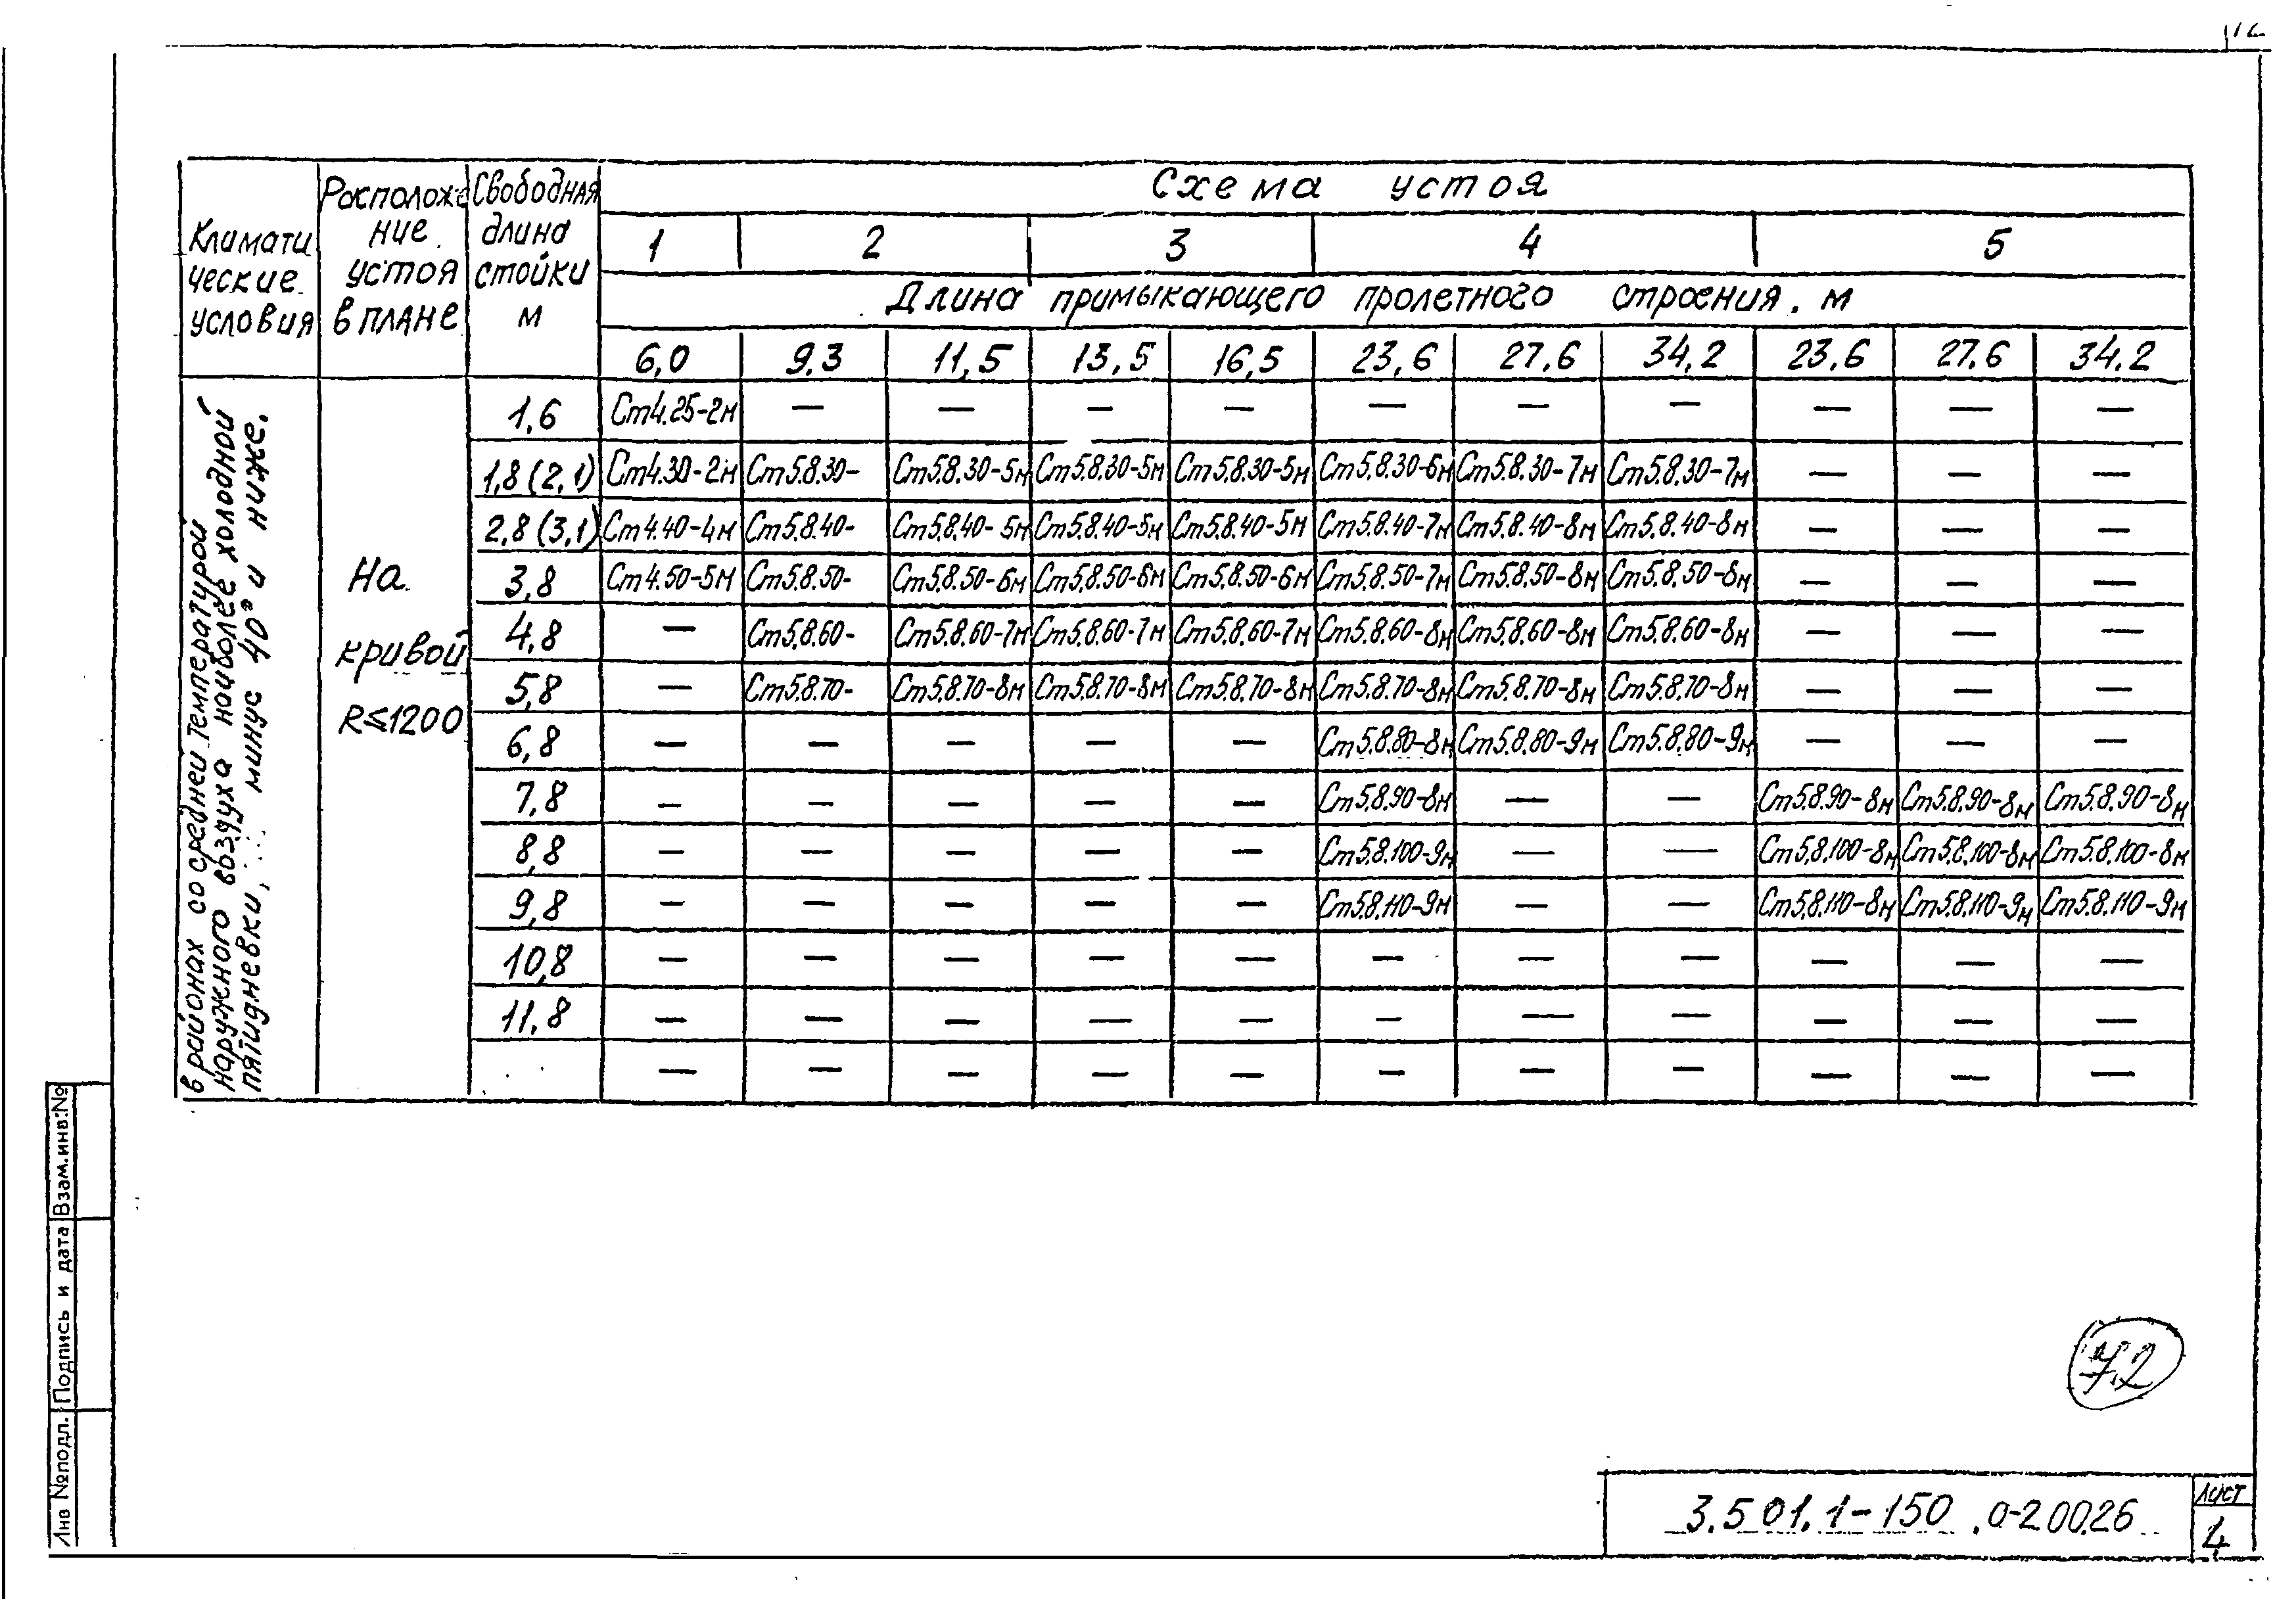 Климати Расположе Свободная Схема устоя
ческие ние длина 1 2 3 4 5
условия устоя стойки Длина примыкающего пролетного строения. м
в плане м 6,0 9,3 11,5 13,5 16,5 23,6 27.6 34,2 23,6 27.6 34.2
в районах со средней температурой
наружного воздуха наиболее холодной
пятидневки, минус 40° и ниже.
На
кривой
R≤1200
1,6 Ст4.25-2м — — — — — — — — — —
1,8(2,1) Ст4.30-2м Ст5.8.30- Ст5.8.30-5м Ст5.8.30-5м Ст5.8.30-5м Ст5.8.30-6м Ст5.8.30-7м Ст5.8.30-7м — — —
2,8(3,1) Ст4.40-4м Ст5.8.40- Ст5.8.40-5м Ст5.8.40-5м Ст5.8.40-5м Ст5.8.40-7м Ст5.8.40-8м Ст5.8.40-8м — — —
3,8 Ст4.50-5м Ст5.8.50- Ст5.8.50-6м Ст5.8.50-6м Ст5.8.50-6м Ст5.8.50-7м Ст5.8.50-8м Ст5.8.50-8м — — —
4,8 — Ст5.8.60- Ст5.8.60-7м Ст5.8.60-7м Ст5.8.60-7м Ст5.8.60-8м Ст5.8.60-8м Ст5.8.60-8м — — —
5,8 — Ст5.8.70- Ст5.8.70-8м Ст5.8.70-8м Ст5.8.70-8м Ст5.8.70-8м Ст5.8.70-8м Ст5.8.70-8м — — —
6,8 — — — — — Ст5.8.80-8м Ст5.8.80-9м Ст5.8.80-9м — — —
7,8 — — — — — Ст5.8.90-8м — — Ст5.8.90-8м Ст5.8.90-8м Ст5.8.90-8м
8,8 — — — — — Ст5.8.100-9м — — Ст5.8.100-8м Ст5.8.100-8м Ст5.8.100-8м
9,8 — — — — — Ст5.8.110-9м — — Ст5.8.110-8м Ст5.8.110-9м Ст5.8.110-9м
10,8 — — — — — — — — — — —
11,8 — — — — — — — — — — —
— — — — — — — — — — —
Инв №подл. Подпись и дата Взам.инв.№
72
3.501.1-150.0-20026
Лист
4